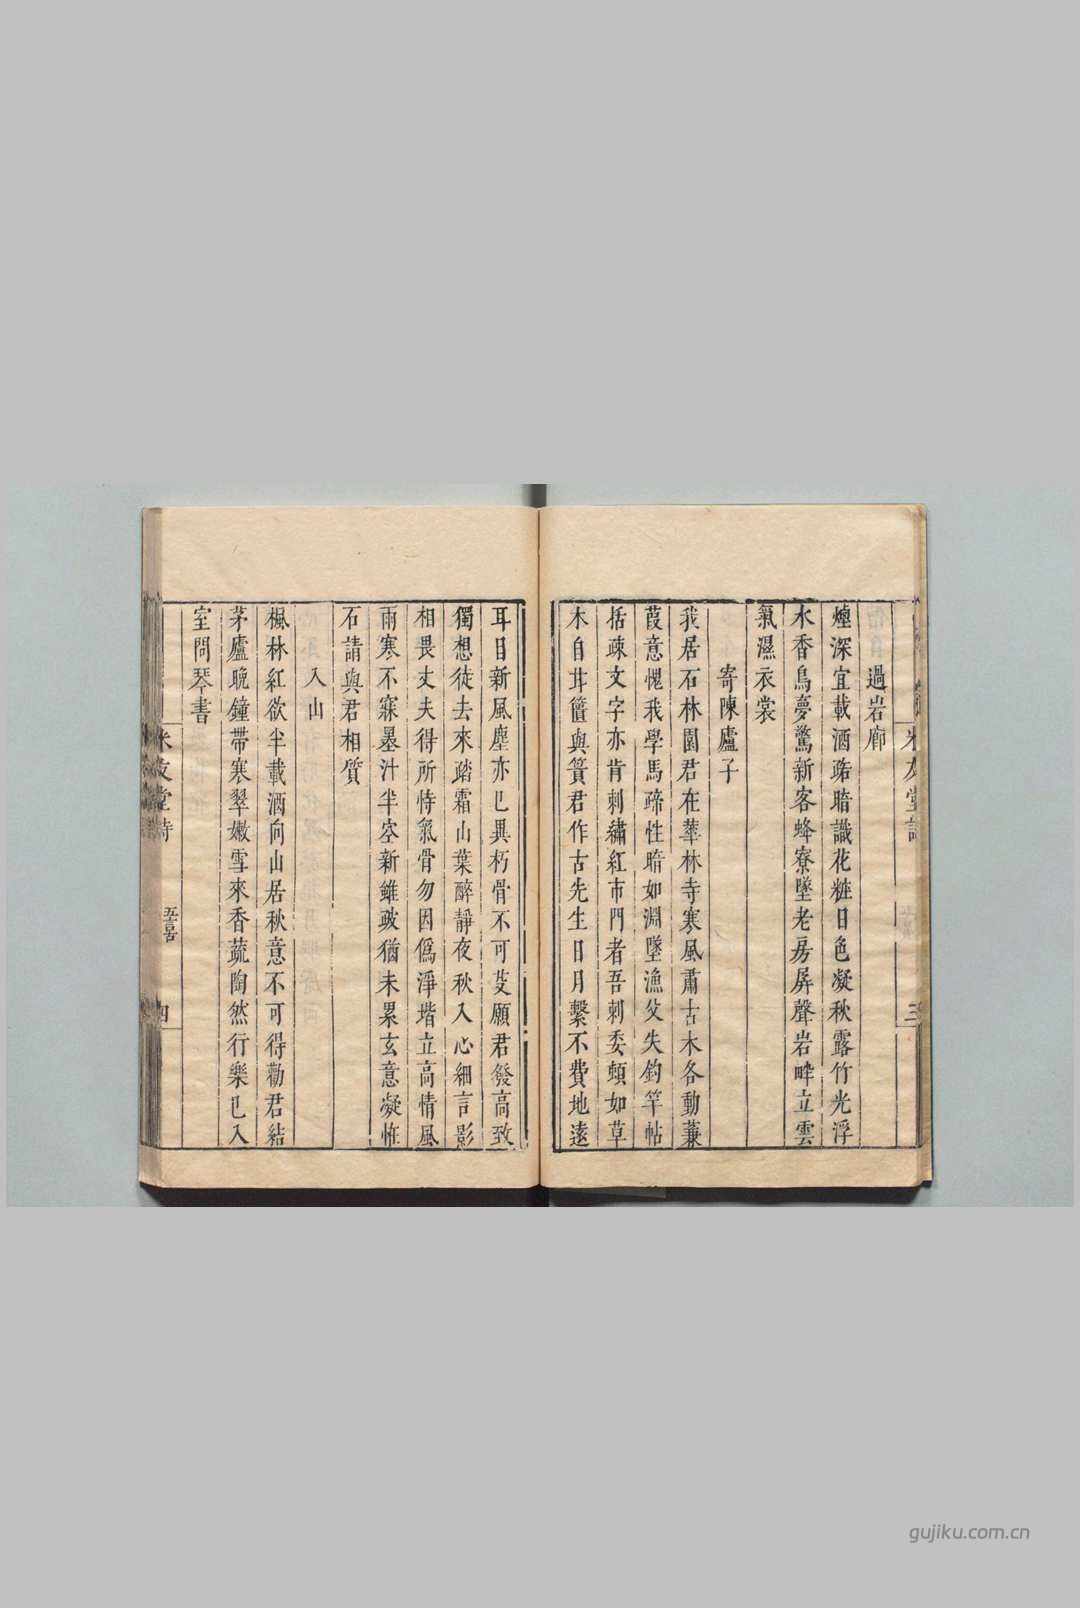 過岩廊
煙深宜載酒路暗識花粧日色凝秋露竹光浮
水香鳥夢驚新客蜂寮墜老房屏聲岩畔立雲
氣濕衣裳
寄陳盧子
我居石林園君在華林寺寒風肅古木各動蒹
葭意愧我學馬蹄性暗如淵墜漁父失釣竿帖
括疎文字亦肯刺繡紅市門者吾刺委頓如草
木自廿簠與簣君作古先生日月繫不費地遠
耳目新風塵亦已異朽骨不可芟願君發高致
獨想徒去來踏霜山葉醉靜夜秋入心細言影
相畏丈夫得所恃氣骨勿因僞淨堦立高情風
雨寒不寐墨汁半空新雖跛猶未累玄意凝恠
石請與君相質
入山
楓林紅欲半載酒向山居秋意不可得勸君結
茅廬晚鐘帶寒翠嫩雪來香蔬陶然行樂已入
室問琴書
米友堂詩
三
米友堂詩
四
gujiku.com.cn